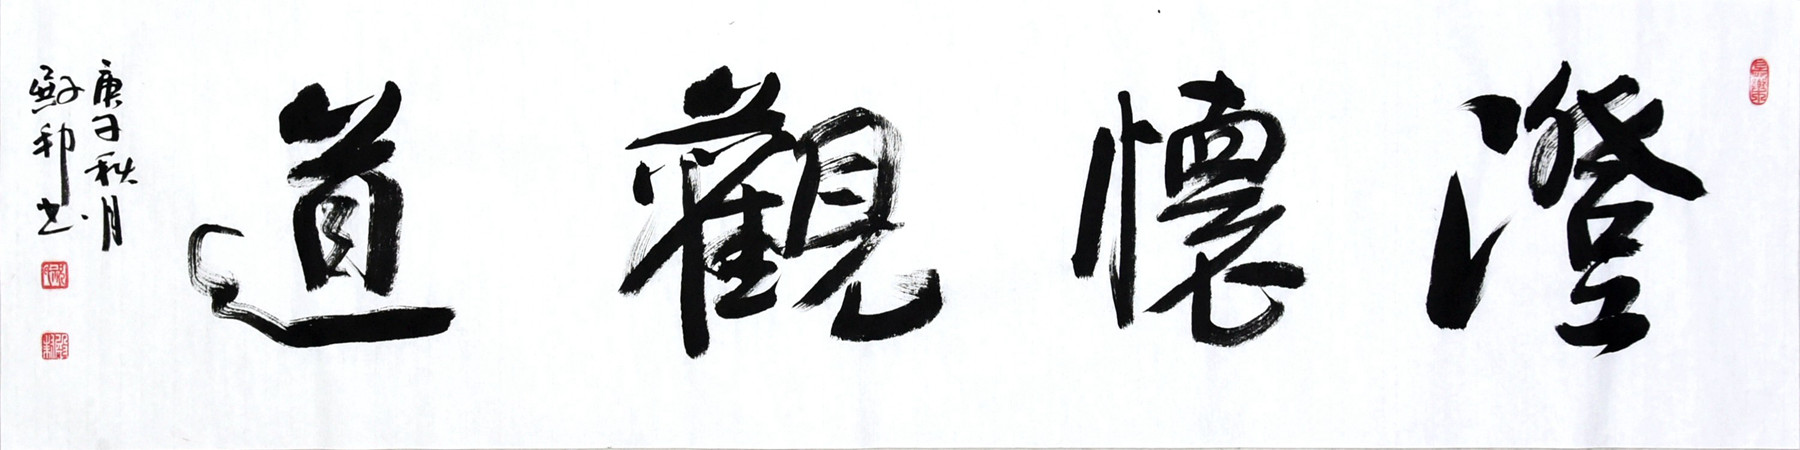 澄懷觀道
庚子秋月
蘇和书